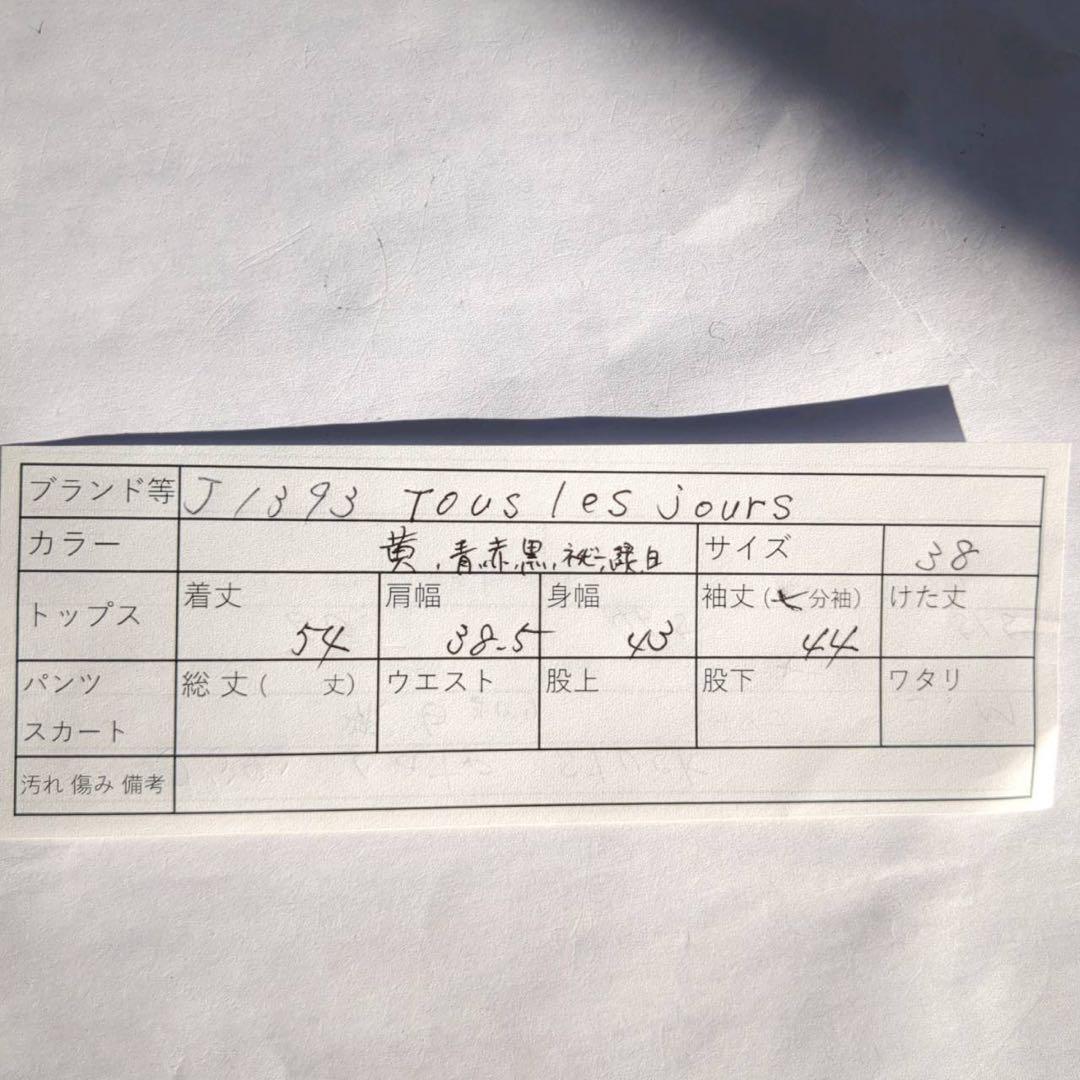 ブランド等 J1393 Tous les jours
カラー 黄、青、赤、黒、 サイズ 38
トップス 着丈 54 肩幅 38.5 身幅 43 袖丈(七分袖) 44 けた丈
パンツ スカート 総丈( 丈) ウエスト 股上 股下 ワタリ
汚れ 傷み 備考